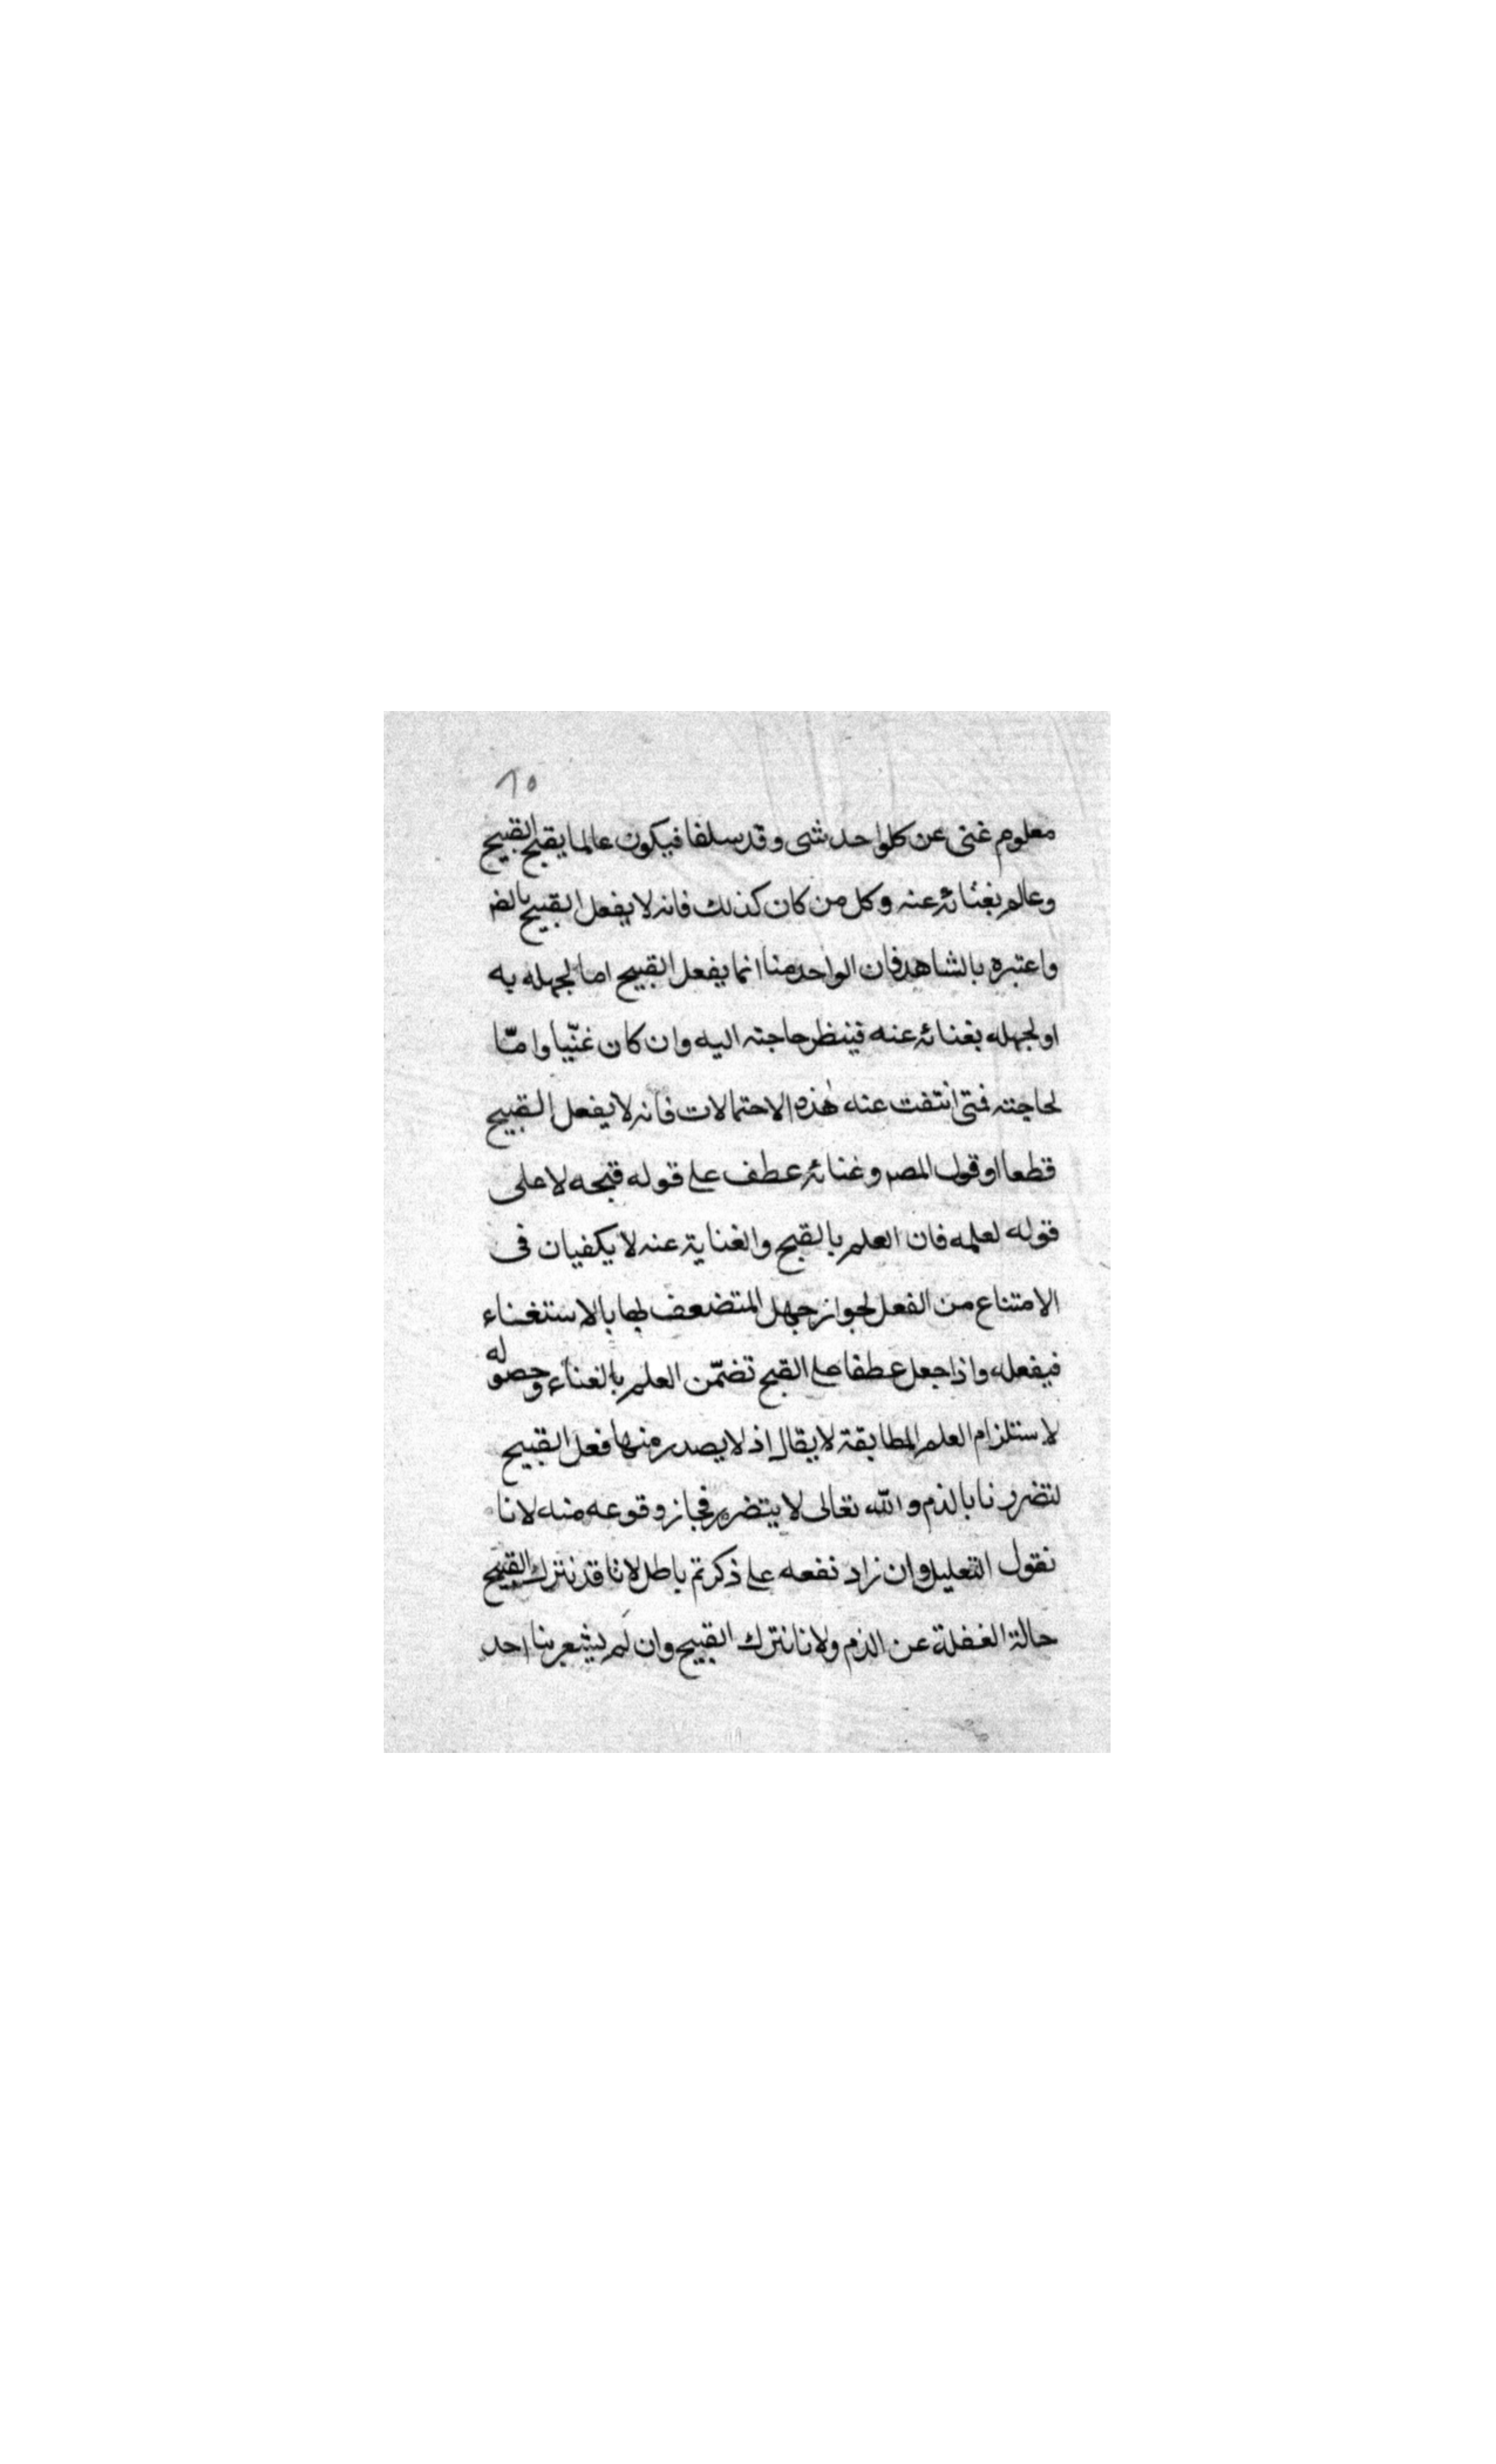 ١٥
معلوم غنى عن كلواحد شى وقد سلفا فيكون عالما يقبح القبيح
وعالم بغنائه عنه وكل من كان كذلك فانه لا يفعل القبيح بالضر
واعتبره بالشاهد فان الواحد منا انما يفعل القبيح اما لجهله به
او لجهله بغنائه عنه فينظر حاجته اليه وان كان غنّيا وامّا
لحاجته فمتى انتفت عنه هذه الاحتمالات فانه لا يفعل القبيح
قطعا او قول المصر وغنائه عطف على قوله قبحه لا على
قوله لعلمه فان العلم بالقبح والغناية عنه لا يكفيان فى
الامتناع من الفعل لجواز جهل المتضعف بها بالاستغناء
فيفعله واذا جعل عطفا على القبح تضمّن العلم بالغناء وحصوله
لاستلزام العلم المطابقة لا يقال اذ لا يصدر منها فعل القبيح
لتضررنا بالذم والله تعالى لا يتضرر فجاز وقوعه منه لانا
نقول التعليل وان زاد نفعه على ذكرتم باطل لانا قد نترك القبيح
حالة الغفلة عن الذم ولانا نترك القبيح وان لم يشعر بنا احد